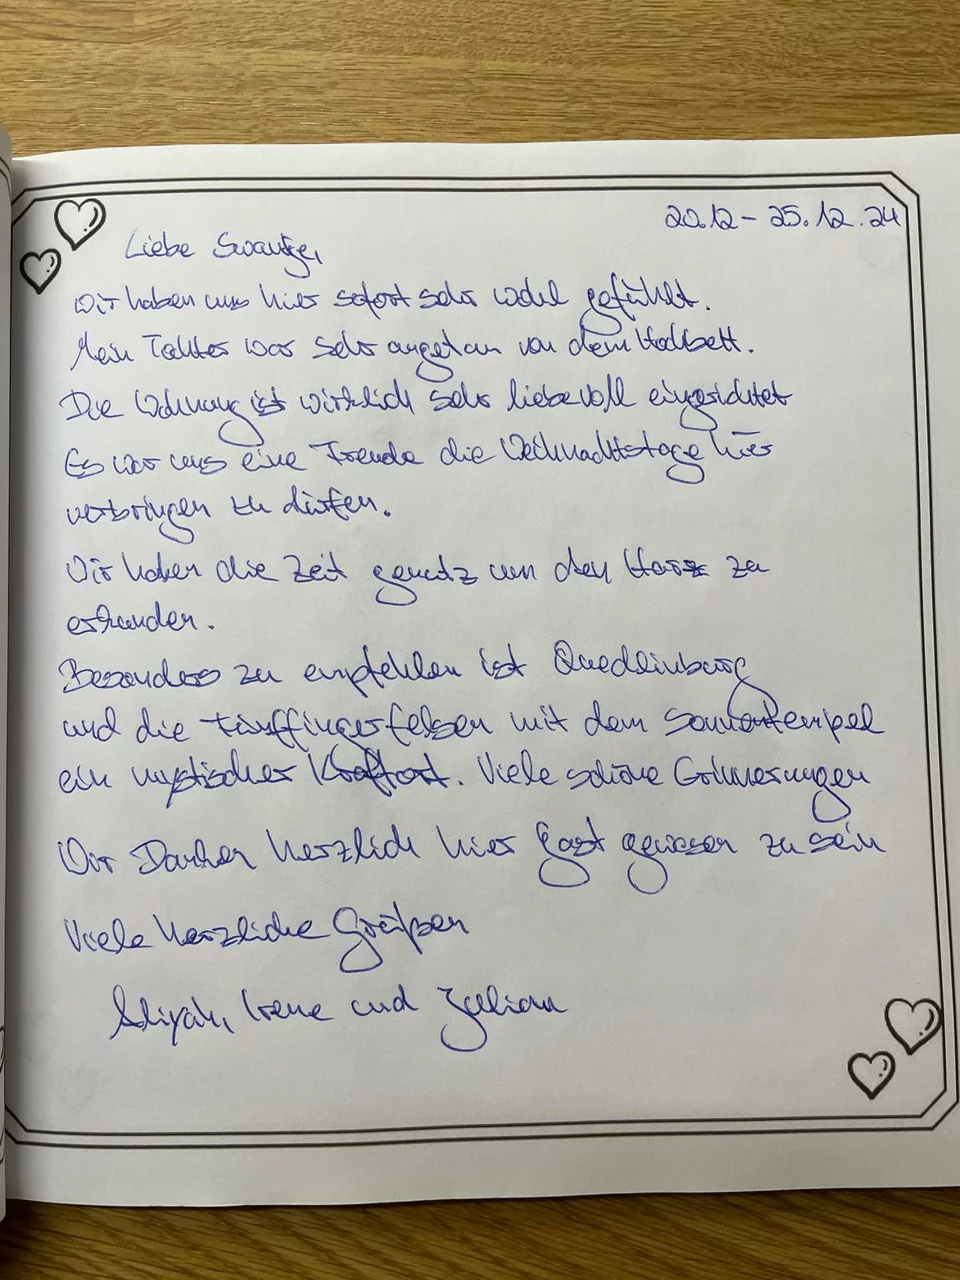 20.12 - 25.12.24
Liebe Swantje,
Wir haben uns hier sofort sehr wohl gefühlt.
Mein Tochter war sehr angetan von dem Hochbett.
Die Wohnung ist wirklich sehr liebevoll eingerichtet
Es war uns eine Freude die Weihnachtstage hier
verbringen zu dürfen.
Wir haben die Zeit genutz um den Harz zu
erkunden.
Besonders zu empfehlen ist Quedlinburg
und die fünffingerfelsen mit dem Sonnentempel
ein mystischer Kraftort. Viele schöne Erinnerungen
Wir Danken herzlich hier Gast gewesen zu sein
Viele herzliche Grüßen
Aliyah, Irene und Julian